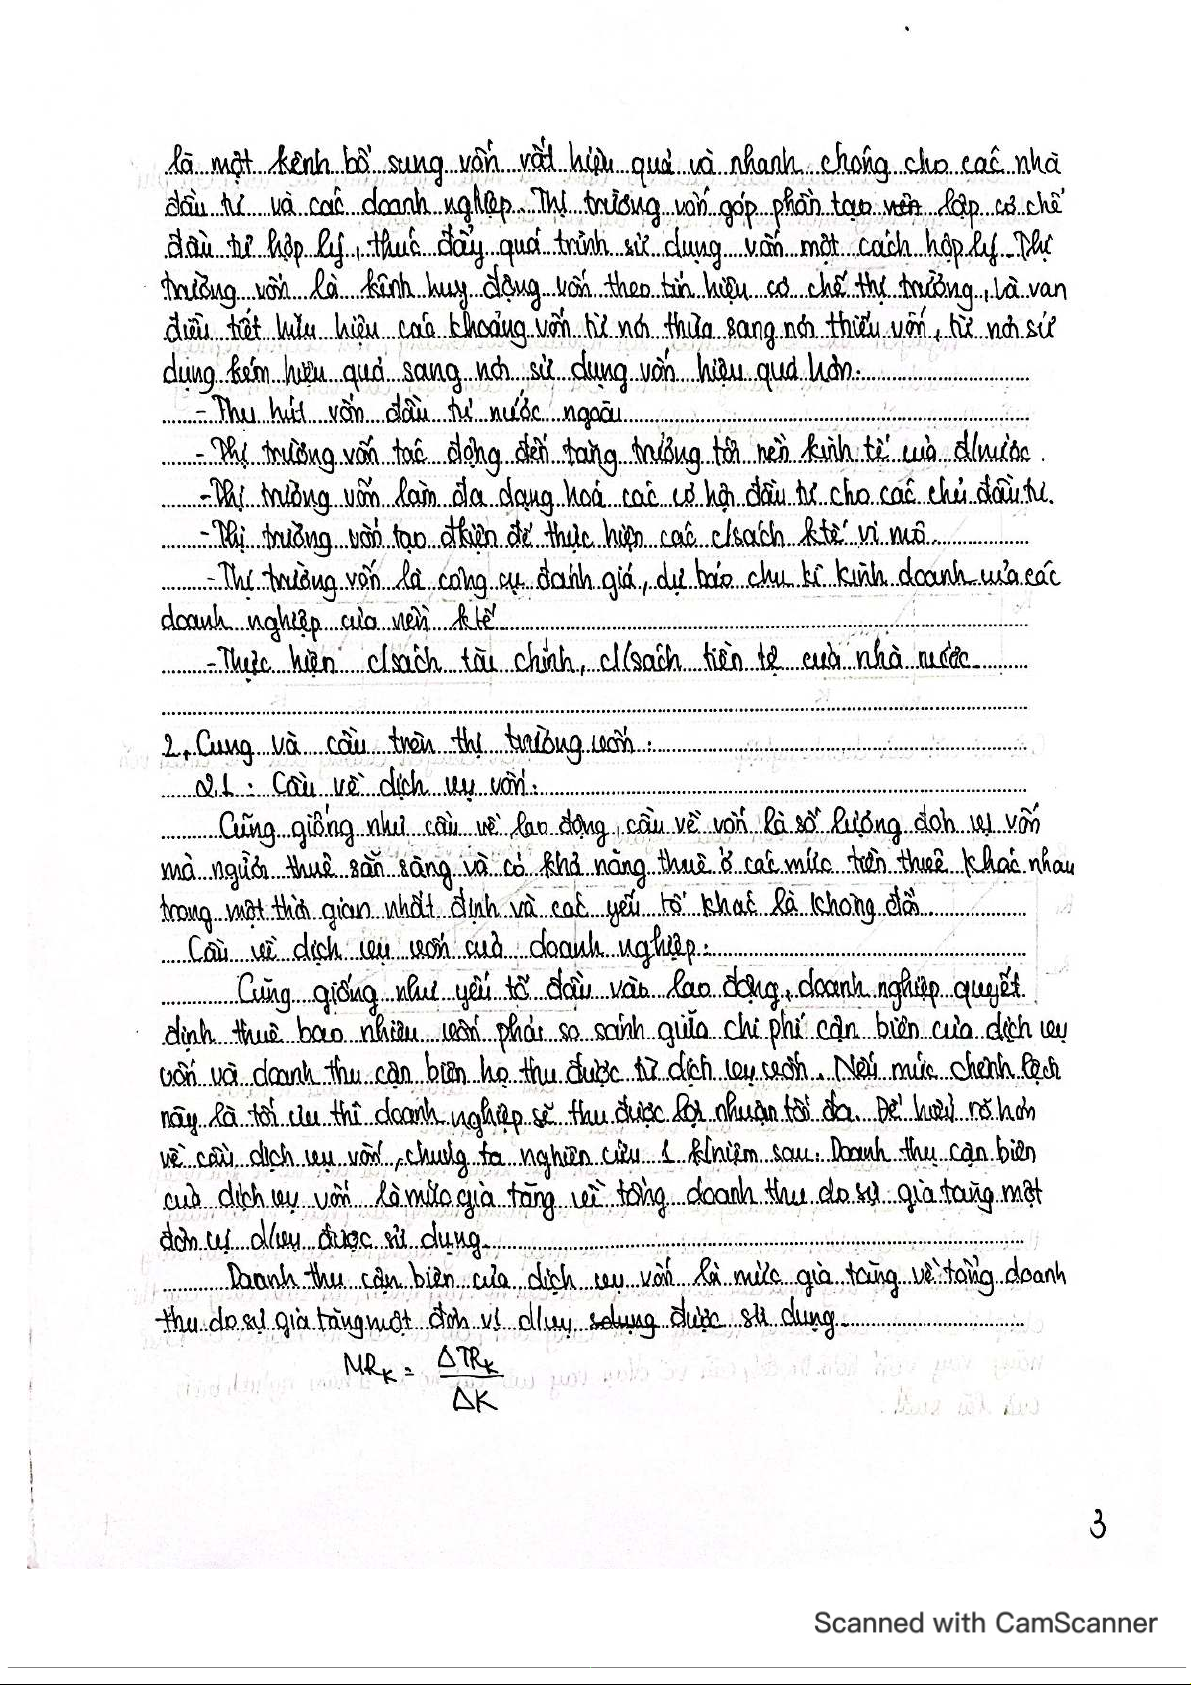 là một kênh bổ sung vốn rất hiệu quả và nhanh chóng cho các nhà
đầu tư và các doanh nghiệp. Thị trường vốn góp phần tạo nên lập cơ chế
đầu tư hợp lý, thúc đẩy quá trình sử dụng vốn một cách hợp lý. Thị
trường vốn là kênh huy động vốn theo tín hiệu cơ chế thị trường, là van
điều tiết hữu hiệu các khoảng vốn từ nơi thừa sang nơi thiếu vốn, từ nơi sử
dụng kém hiệu quả sang nơi sử dụng vốn hiệu quả hơn.
- Thu hút vốn đầu tư nước ngoài
- Thị trường vốn tác động đến tăng trưởng tới nền kinh tế của đ/nước.
- Thị trường vốn làm đa dạng hoá các cơ hội đầu tư cho các chủ đầu tư.
- Thị trường vốn tạo đkiện để thực hiện các c/sách ktế vĩ mô
- Thị trường vốn là công cụ đánh giá, dự báo chu kì kinh doanh của các
doanh nghiệp của nền ktế
- Thực hiện c/sách tài chính, c/sách tiền tệ của nhà nước
2, Cung và cầu trên thị trường vốn:
2.1: Cầu về dịch vụ vốn:
Cũng giống như cầu về lao động, cầu về vốn là số lượng đơn vị vốn
mà người thuê sẵn sàng và có khả năng thuê ở các mức tiền thuê khác nhau
trong một thời gian nhất định và các yếu tố khác là không đổi
Cầu về dịch vụ vốn của doanh nghiệp:
Cũng giống như yếu tố đầu vào lao động, doanh nghiệp quyết
định thuê bao nhiêu vốn phải so sánh giữa chi phí cận biên của dịch vụ
vốn và doanh thu cận biên họ thu được từ dịch vụ vốn. Nếu mức chênh lệch
này là tối ưu thì doanh nghiệp sẽ thu được lợi nhuận tối đa. Để hiểu rõ hơn
về cầu dịch vụ vốn, chúng ta nghiên cứu 1 k/niệm sau: Doanh thu cận biên
của dịch vụ vốn là mức gia tăng về tổng doanh thu do sự gia tăng một
đơn vị d/vụ được sử dụng
Doanh thu cận biên của dịch vụ vốn là mức gia tăng về tổng doanh
thu do sự gia tăng một đơn vị d/vụ được sử dụng
MR_K = ΔTR_K / ΔK
3
Scanned with CamScanner